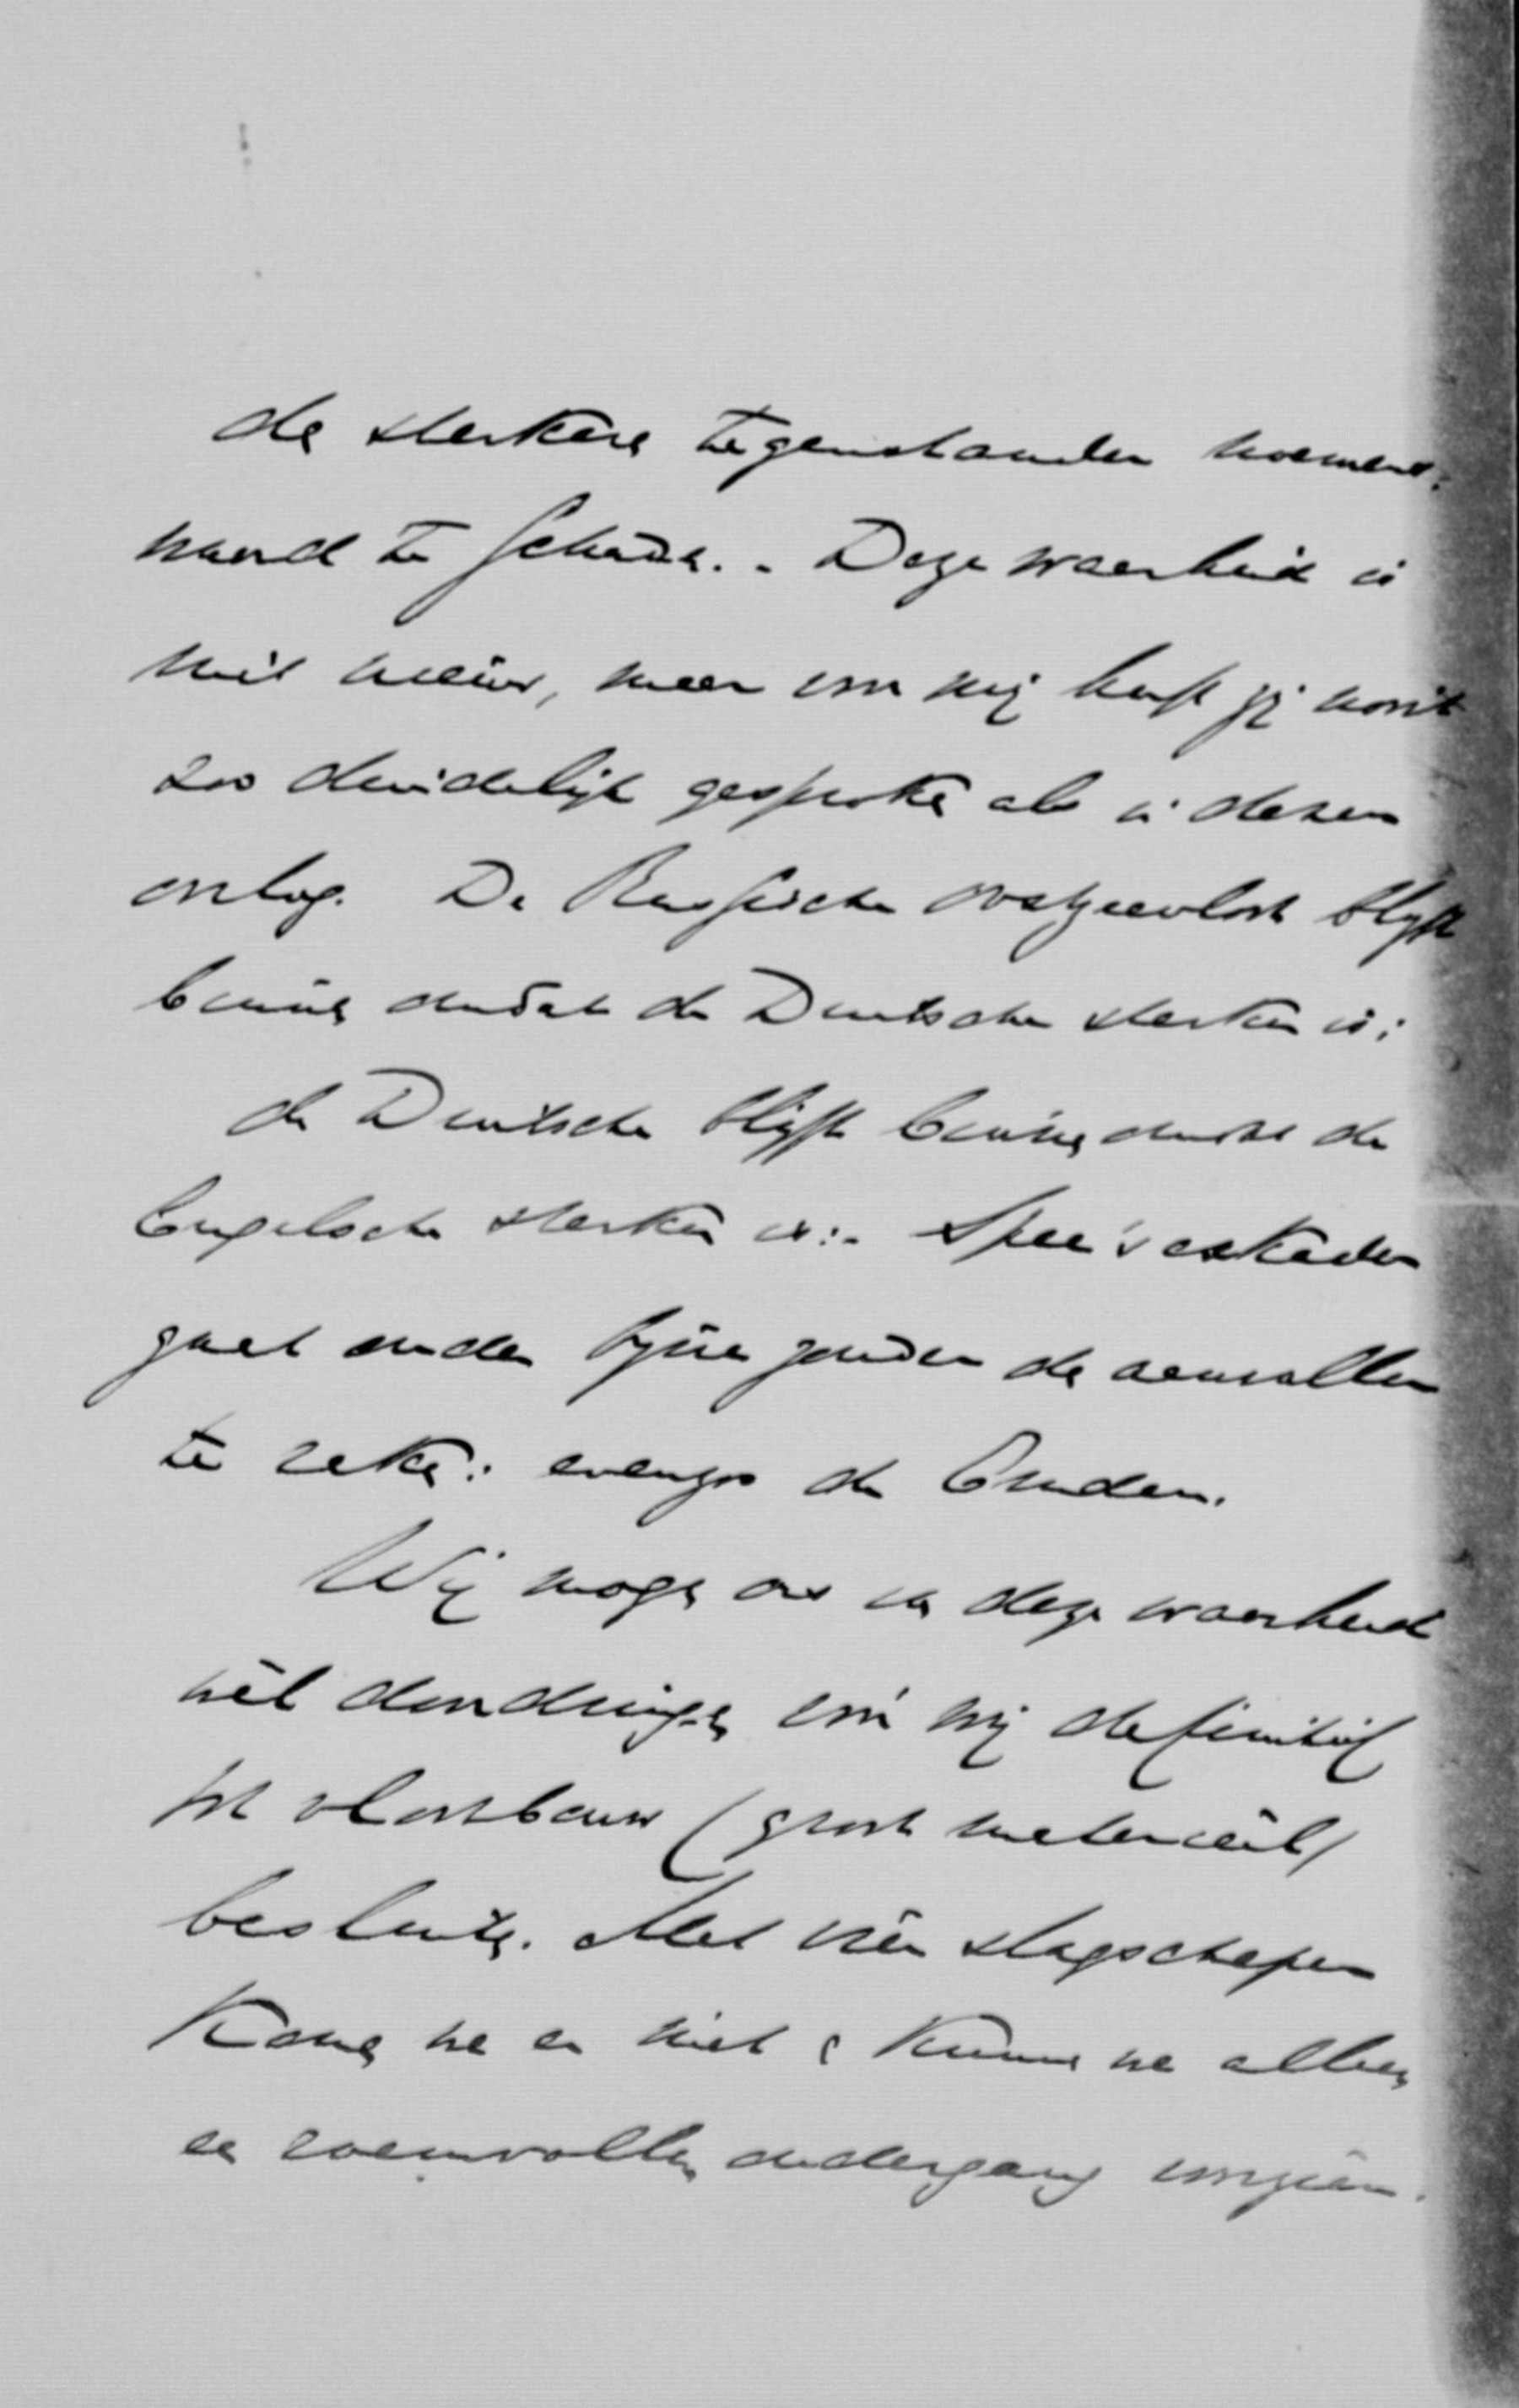 den sterkere tegenstander noemens-
waard te schaden. - Deze waarheid is
niet nieuw, maar voor mij heeft zij nooit
zoo duidelijk gesproken als in dezen
oorlog. De Russische Oostzeevloot blijft
binnen omdat de Duitsche sterker is;
de Duitsche blijft binnen omdat de
Engelsche sterker is. - Spee's eskader
gaat onder bijna zonder de aanvaller
te raken: evenzoo de Emden.
Wij mogen ons van deze waarheid
wel doordringen vóór wij definitief
tot vlootbouw (groot materieel)
besluiten. Met vier slagschepen
komen we er niet & kunnen we alleen
een roemvollen ondergang voorzien.